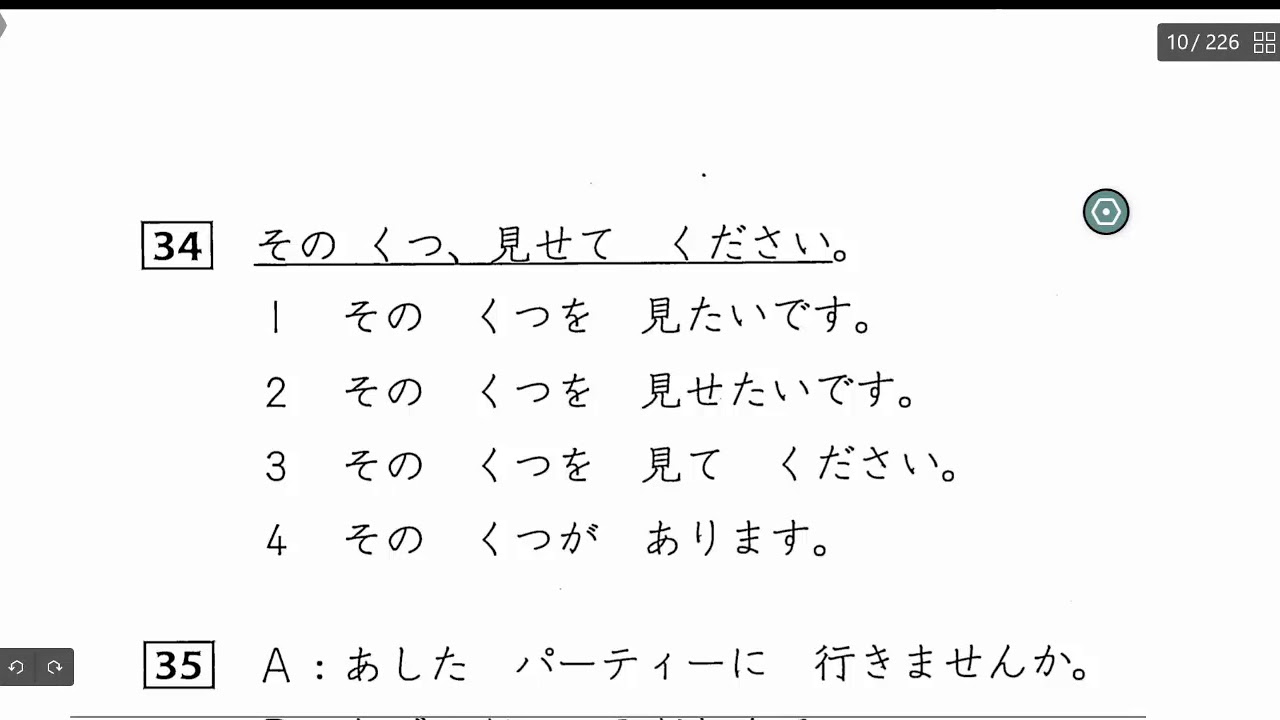 10 / 226
34 その くつ、見せて ください。
1 その くつを 見たいです。
2 その くつを 見せたいです。
3 その くつを 見て ください。
4 その くつが あります。
35 A:あした パーティーに 行きませんか。